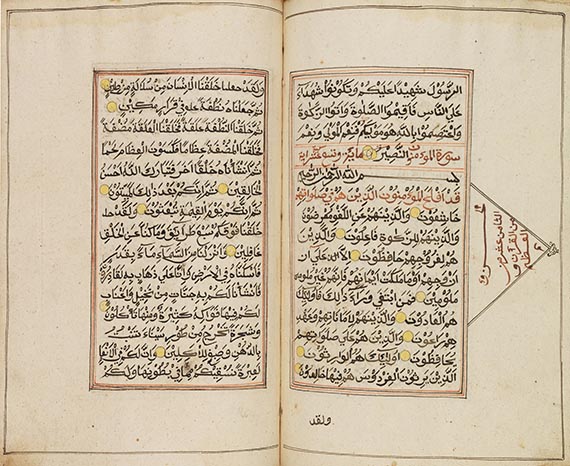 الرسول شهيدا عليكم وتكونوا شهداء
على الناس فاقيموا الصلوة واتوا الزكوة
واعتصموا بالله هو موليكم فنعم المولى ونعم
سورة المؤمنون النصير
بسم الله الرحمن الرحيم
قد افلح المؤمنون الذين هم في صلاتهم
خاشعون والذين هم عن اللغو معرضون
والذين هم للزكوة فاعلون والذين
هم لفروجهم حافظون الا على
ازوجهم او ما ملكت ايمانهم فانهم غير
ملومين فمن ابتغى وراء ذالك فاولئك
هم العادون والذين هم لاماناتهم وعهدهم
هم راعون والذين هم على صلواتهم
يحافظون اولئك هم الوارثون
الذين يرثون الفردوس هم فيها خالدون
ولقد
من القرآن
العظيم
ولقد خلقنا الانسان من سلالة من طين
ثم جعلناه نطفة في قرار مكين
ثم خلقنا النطفة علقة فخلقنا العلقة مضغة
فخلقنا المضغة عظاما فكسونا العظام لحما
ثم انشأناه خلقا آخر فتبارك الله احسن
الخالقين ثم انكم بعد ذلك لميتون
ثم انكم يوم القيمة تبعثون ولقد
خلقنا فوقكم سبع طرايق وما كنا عن الخلق
غافلين وانزلنا من السماء ماء بقدر
فاسكناه في الارض وانا على ذهاب به لقادرون
فانشأنا لكم به جنات من نخيل واعناب
لكم فيها فواكه كثيرة ومنها تاكلون
وشجرة تخرج من طور سيناء تنبت
بالدهن وصبغ للاكلين وان لكم في الانعام
لعبرة نسقيكم مما في بطونها ولكم